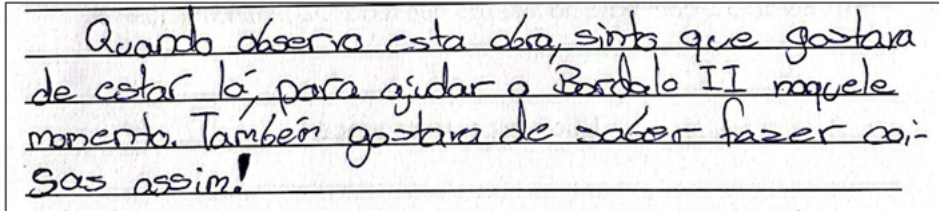 Quando observo esta obra, sinto que gostava
de estar lá, para ajudar o Bordalo II naquele
momento. Também gostava de saber fazer coi-
sas assim!